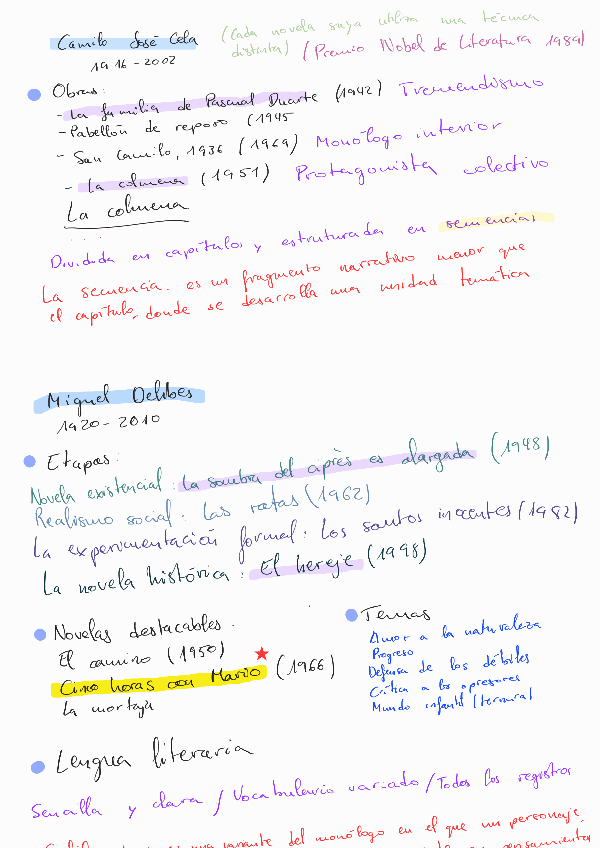 Camilo José Cela (Cada novela suya utiliza una técnica
distinta) (Premio Nobel de Literatura 1989)
1916-2002
Obras:
- La familia de Pascual Duarte (1942) Tremendismo
- Pabellón de reposo (1945
- San Camilo, 1936 (1969) Monólogo interior
- La colmena (1951) Protagonista colectivo
La colmena
Dividida en capítulos y estruturada en secuencias
La secuencia. es un fragmento narrativo menor que
el capítulo, donde se desarrolla una unidad temática
Miguel Delibes
1920-2010
Etapas:
Novela existencial: La sombra del ciprès es alargada (1948)
Realismo social: Las ratas (1962)
La experimentación formal: Los santos inocentes (1982)
La novela histórica: El hereje (1998)
Novelas destacables.
El camino (1950)
Cinco horas con Mario (1966)
La mortaja
Temas
Amor a la naturaleza
Progreso
Defensa de los débiles
Crítica a los opresores
Mundo infantil/ternura/
Lengua literaria
Sencilla y clara / Vocabulario variado / Todos los registros
una variante del monólogo en el que un personaje,
pensamientos